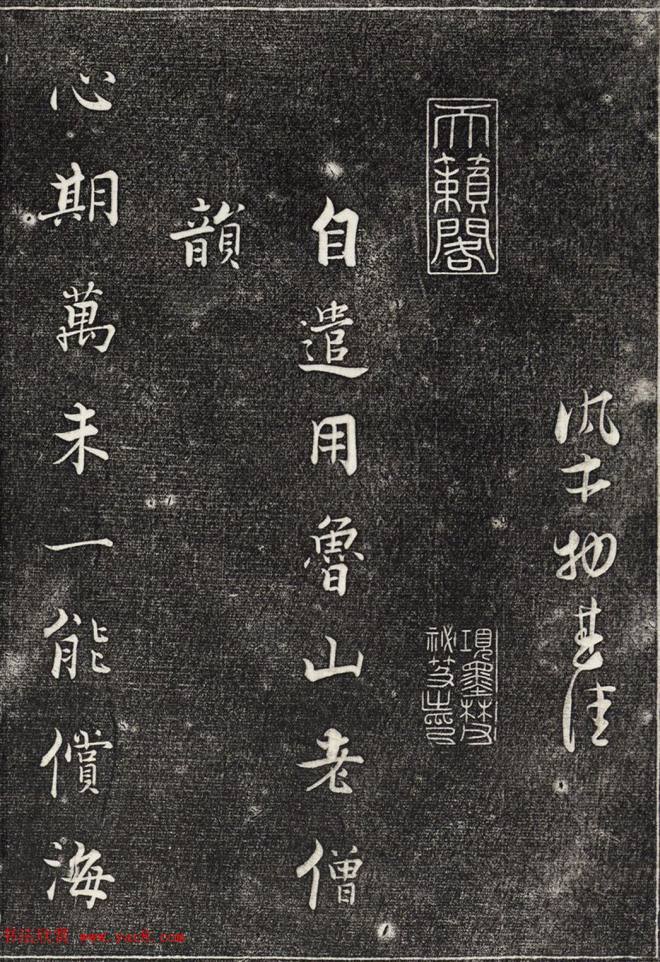 物甚佳
天籟閣
項墨林父
祕笈之印
自遣用魯山老僧
韻
心期萬未一能償海
书法欣赏 www.yac8.com